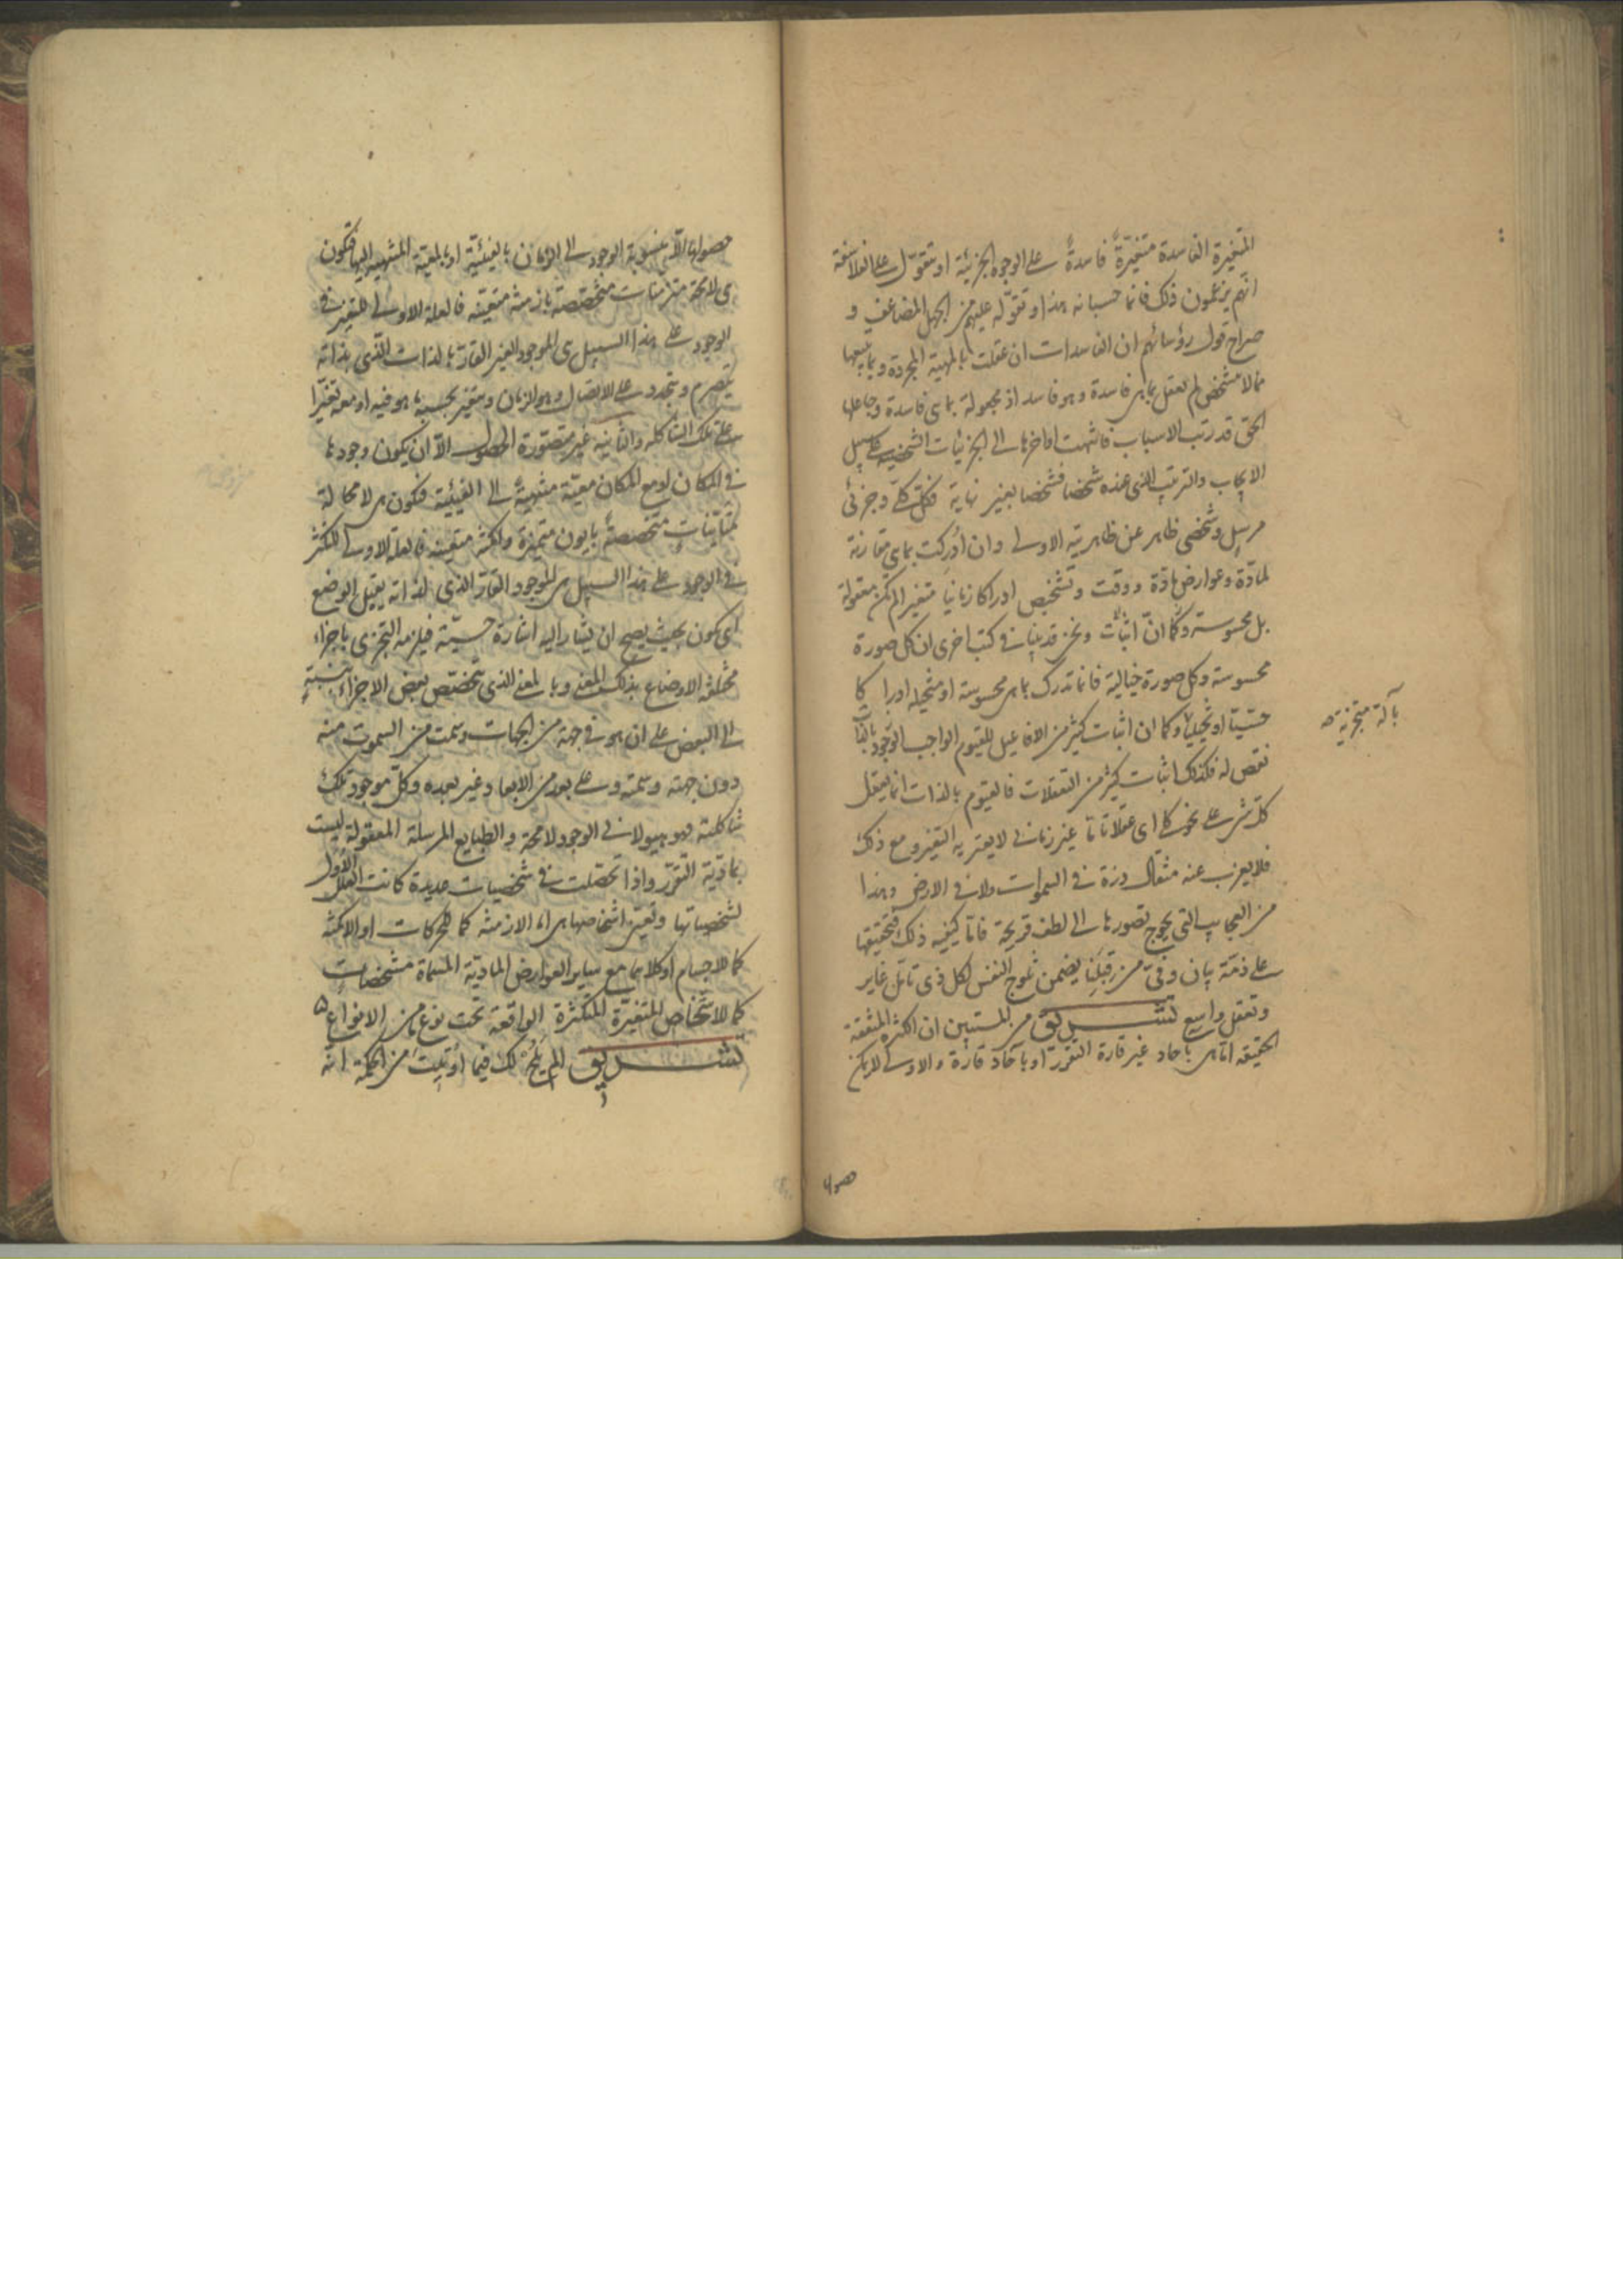 المتغيرة الفاسدة متغيّرةً فاسدةً على الوجوه الجزئية او تقوّل على الفلاسفة
انهم يزعمون ذلك فانما حسبانه هذا وتقوّله عليهم من الجهل المضاعف و
صراح قول رؤسائهم ان الفاسدات ان عقلت بالمهية المجردة وبما يتبعها
مما لا يتشخص لم تعقل بما هى فاسدة وهو فاسد اذ مجهولة بما هى فاسدة وجاعلها
الحق قد رتب الاسباب فانتهت اواخرها الى الجزئيات الشخصية على سبيل
الايجاب والترتيب الذى عنده شخصا فشخصا بغير نهاية فكل كلى وجزئى
مرسل وشخصى ظاهر عن ظاهريته الاولى وان ادركت بما هى مقارنة
لمادة وعوارض مادة ووقت وتشخيص ادراكا زمانيا متغيرا لم تكن معقولة
بل محسوسة وكما انّ اثبات ونحن قد بينا فى كتب اخرى ان كل صورة
محسوسة وكل صورة خيالية فانما تدرك بما هى محسوسة او متخيلة ادراكا
بآلة متجزئة
حسّيّا او تخيليا وكما ان اثبات كثير من الافاعيل للقيوم الواجب الوجود بالذات
نقص له فكذلك اثبات كثير من التعقلات فالقيوم بالذات انما يعقل
كل شئ على نحو كلى اى عقلا تاما غير زمانى لا يعتريه التغير ومع ذلك
فلا يعزب عنه مثقال ذرة فى السموات ولا فى الارض وهذا
من العجايب التى يحوج تصورها الى لطف قريحة فاما كيفية ذلك فتحقيقها
على ذمّة بيان وفىّ من قبلنا يضمن ثلوج النفس لكل ذى تامّل غاير
وتعقل واسع تشـــريق من المستبين ان الكثرة المتفقة
الحقيقة اما هى باحاد غير قارة التقرر او بآحاد قارة والاولى لا يمكن
حصولها الا
حصولها الا بنسوبة الوجود الى الزمان بالفيئيّة او بالمعيّة المنتهية اليها فتكون
هى لا محة متزمنات متخصصة بازمنة متعيّنة فالعلة الاولى للتغير فى
الوجود على هذا السبيل هى الموجود الغير القار بالذات الذى بذاته
يتصرم ويتجدد على الاتصال وهو الزمان ويتغير بحسبه ما هو فيه او معه تغيّرا
على تلك الشاكلة والثانية غير متصوّرة الحصول الّا ان يكون وجودها
فى المكان او مع المكان معيّة منتهية الى الفيئية فتكون هى لا محالة
متأيّنات متخصصة بايون متميزة وامكنة متعينة فالعلة الاولى للتكثر
فى الوجود على هذا السبيل هى الموجود القار الذى لذاته يقبل الوضع
اى كون بحيث يصح ان يشار اليه اشارة حسيّة فيلزمه التجزى باجزاء
مختلفة الاوضاع بذلك المعنى وبالمعنى الذى يتخصّص بعض الاجزاء بنسبةٍ
الى البعض على ان هو فى جهة من الجهات وسمت من السموت منه
دون جهته وسمته وعلى بعد من الابعاد غير بعده وكلّ موجود تلك
شاكلته فهو هيولانى الوجود لامحة والطبايع المرسلة المعقولة ليست
بمادّية التقرّر واذا تحصّلت فى شخصيات عديدة كانت العلل الأُول
لشخصياتها وتعيّن اشخاصها هى اما الازمنة كما للحركات او الامكنة
كما للاجسام او كلاهما مع ساير العوارض المادّية المسمّاة مشخصات
كما للاشخاص المتغيّرة المتكثرة الواقعة تحت نوع ما من الانواع
تشـــريق الم يَلُحْ لك فيما اُوتيتَ من الحكمة انّه